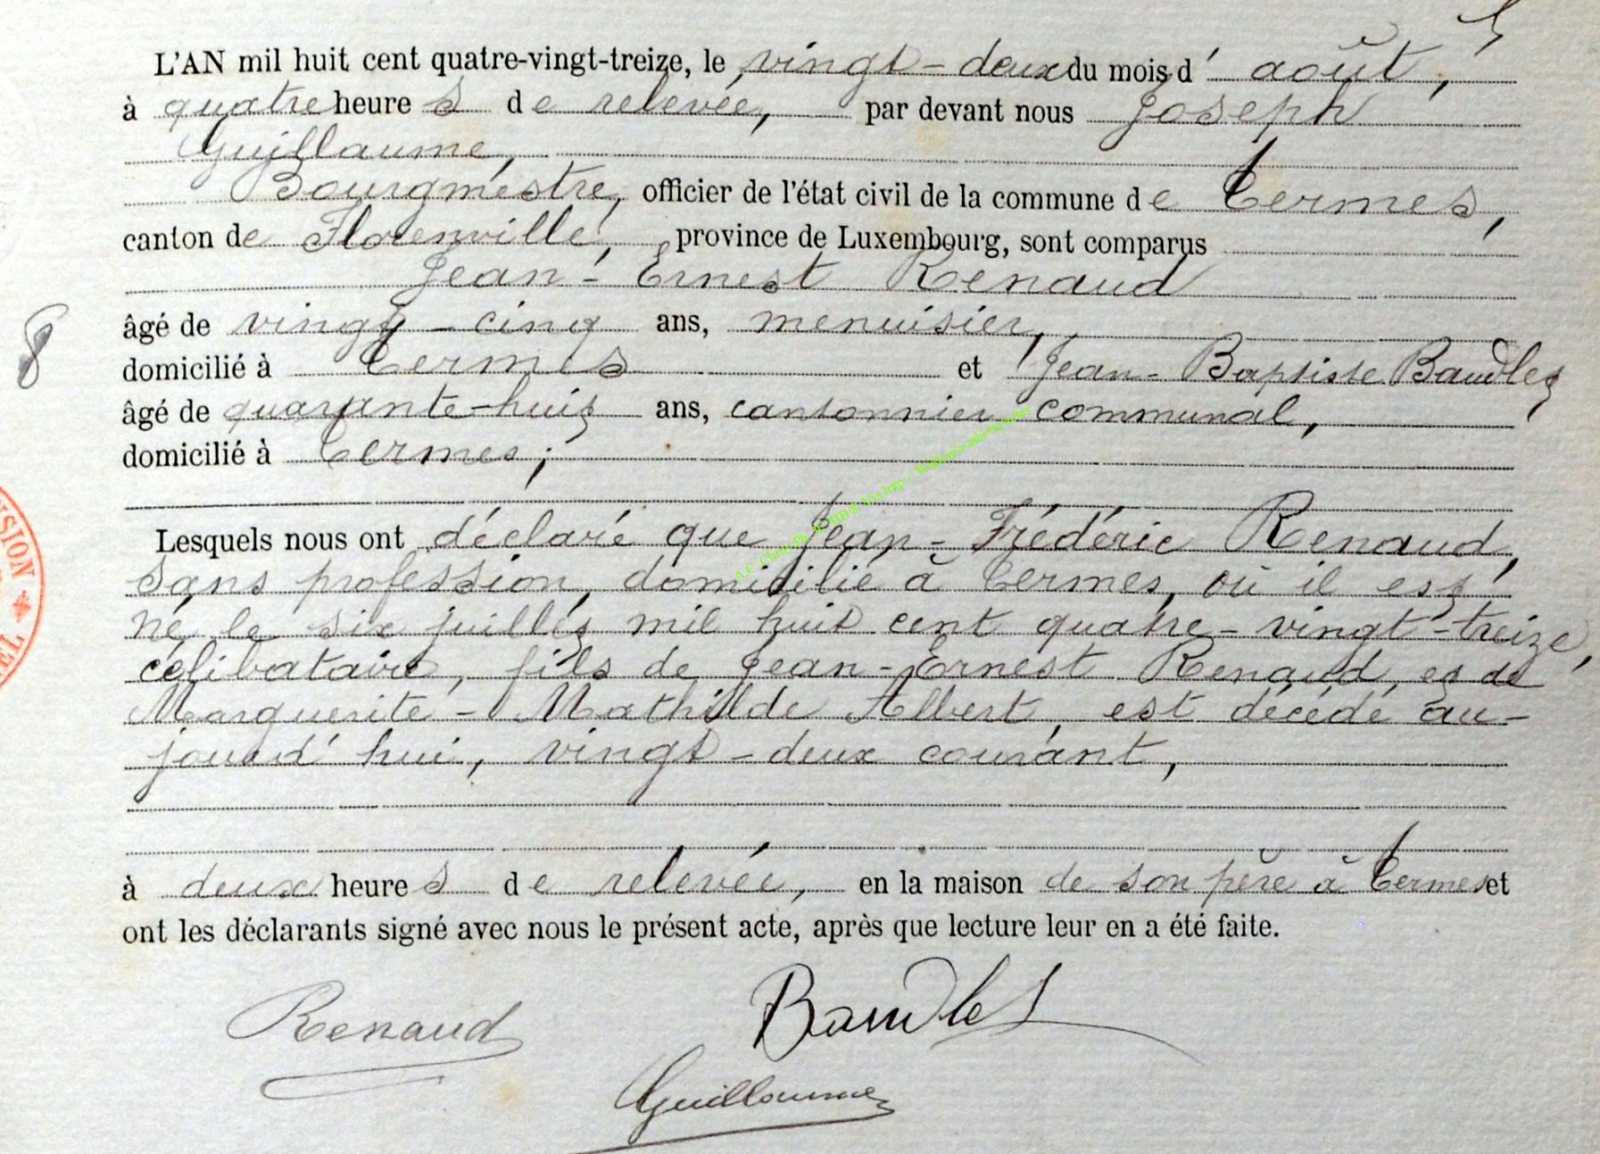 L'AN mil huit cent quatre-vingt-treize, le vingt-deux du mois d' août,
à quatre heures de relevée, par devant nous Joseph
Guillaume,
Bourgmestre, officier de l'état civil de la commune de Termes,
canton de Florenville, province de Luxembourg, sont comparus
Jean-Ernest Renaud
âgé de vingt-cinq ans, menuisier,
8
domicilié à Termes et Jean-Baptiste Baudlet
âgé de quarante-huit ans, cantonnier communal,
domicilié à Termes;
Lesquels nous ont déclaré que Jean-Frédéric Renaud,
sans profession, domicilié à Termes, où il est
né le six juillet mil huit cent quatre-vingt-treize,
célibataire, fils de Jean-Ernest Renaud, et de
Marguerite-Mathilde Albert, est décédé au-
jourd'hui, vingt-deux courant,
à deux heures de relevée, en la maison de son père à Termes et
ont les déclarants signé avec nous le présent acte, après que lecture leur en a été faite.
Renaud
Baudlet
Guillaume